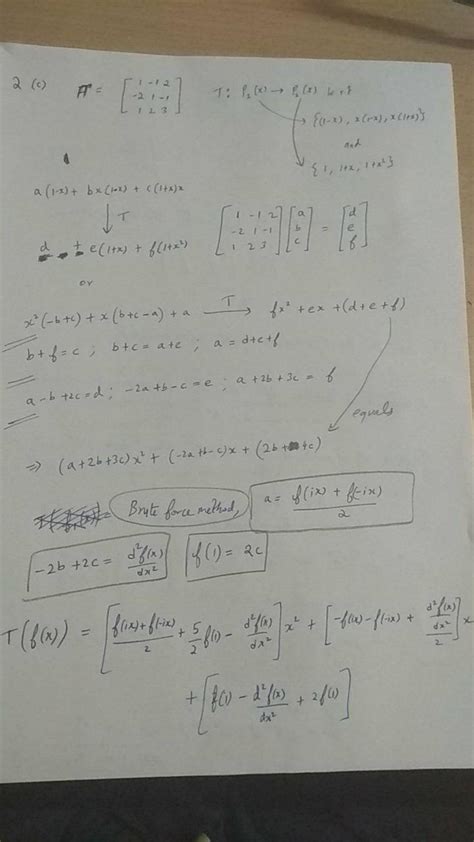 2 (c) A = [ 1 -1 2 ; -2 1 -1 ; 1 2 3 ] T: P₂(x) → P₂(x)
{(1-x), x(1-x), x(1+x)}
and
{1, 1+x, 1+x²}
a(1-x) + bx(1-x) + c(1+x)x
↓ T
d + e(1+x) + f(1+x²) [ 1 -1 2 ; -2 1 -1 ; 1 2 3 ] [ a ; b ; c ] = [ d ; e ; f ]
or
x²(-b+c) + x(b+c-a) + a —T→ fx² + ex + (d+e+f)
b+f=c ; b+c=a+e ; a=d+e+f
a-b+2c=d ; -2a+b-c=e ; a+2b+3c = f
equals
⇒ (a+2b+3c)x² + (-2a+b-c)x + (2b+4c)
Brute force method, a = (f(ix) + f(-ix))/2
-2b+2c = d²f(x)/dx² f(1) = 2c
T(f(x)) = [ (f(ix)+f(-ix))/2 + 5/2 f(1) - d²f(x)/dx² ] x² + [ -f(ix) - f(-ix) + (d²f(x)/dx²)/2 ] x
+ [ f(1) - d²f(x)/dx² + 2f(1) ]